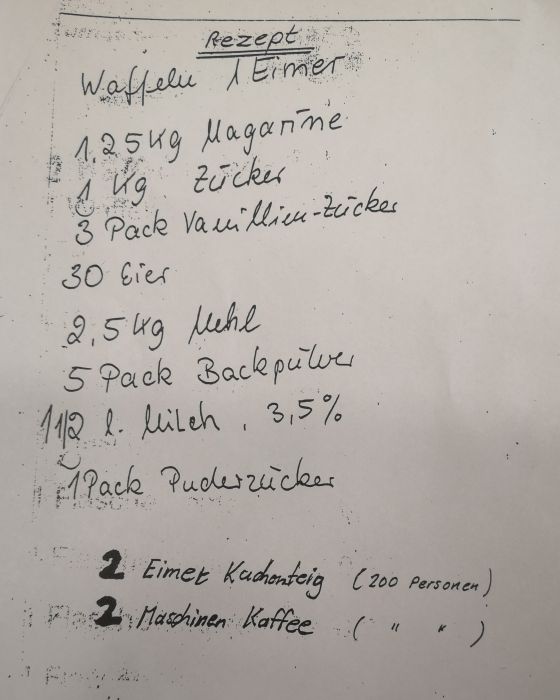 Rezept
Waffeln 1 Eimer
1,25 Kg Magarine
1 Kg Zücker
3 Pack Vanillien-Zücker
30 Eier
2,5 Kg Mehl
5 Pack Backpülver
1 1/2 l. Milch, 3,5%
1 Pack Puderzücker
2 Eimer Kuchenteig (200 Personen)
2 Maschinen Kaffee ( " " )